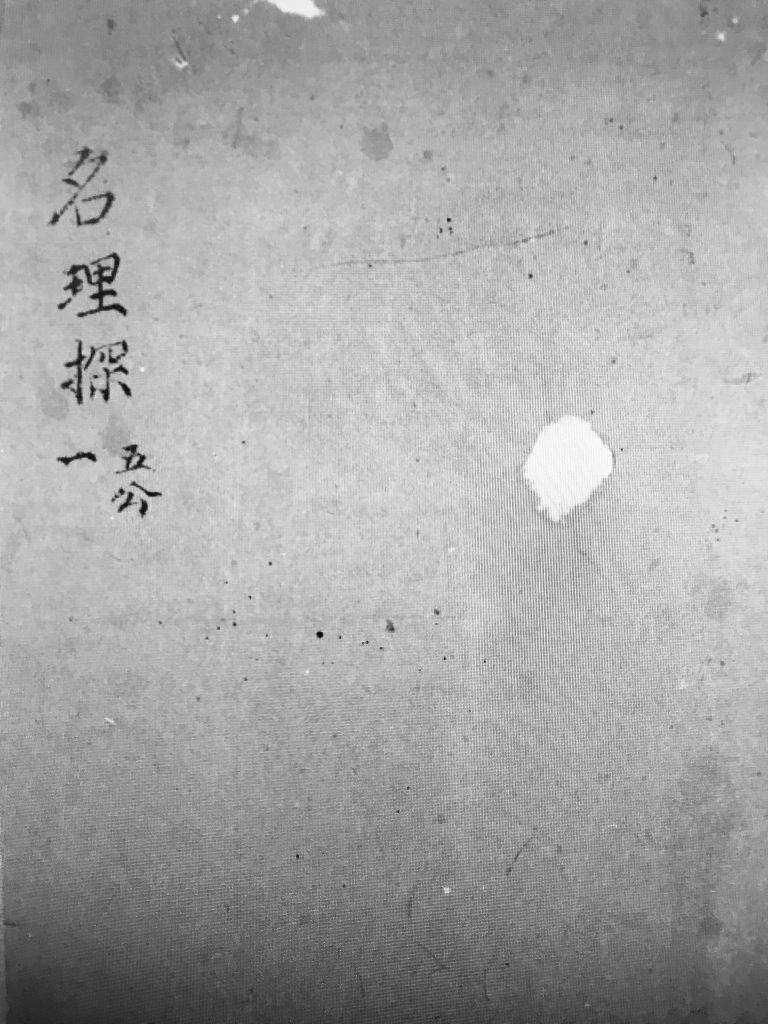 名理探
五公
一